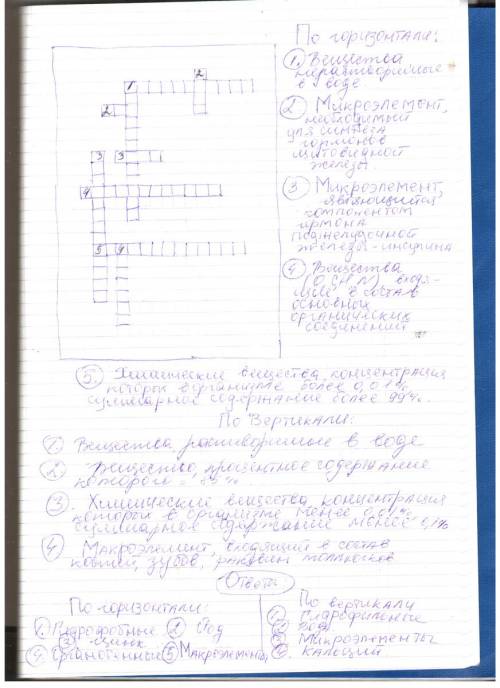 По горизонтали:
1. Вещества
нерастворимые
в воде
2 Микроэлемент,
необходимый
для синтеза
гормонов
щитовидной
железы
3 Микроэлемент,
являющийся
компонентом
гормона
поджелудочной
железы - инсулина
4 Вещества
(O, C, H, N) входя-
щие в состав
основных
органических
соединений
1 2
2
3 3
4
5 4
5. Химические вещества, концентрация
которых в организме более 0,01%,
суммарное содержание более 99%.
По Вертикали:
1 Вещества растворимые в воде
2 Вещество, процентное содержание
которого
3. Химические вещества, концентрация
которых в организме менее 0,01%,
суммарное содержание менее 0,1%
4 Макроэлемент, входящий в состав
костей, зубов, раковин моллюсков
Ответы
По горизонтали:
1. Гидрофобные 2 Йод
3) Цинк
4. Органогенные 5 Макроэлементы
По вертикали
1. Гидрофильные
2. Вода
3 Микроэлементы
4. Кальций